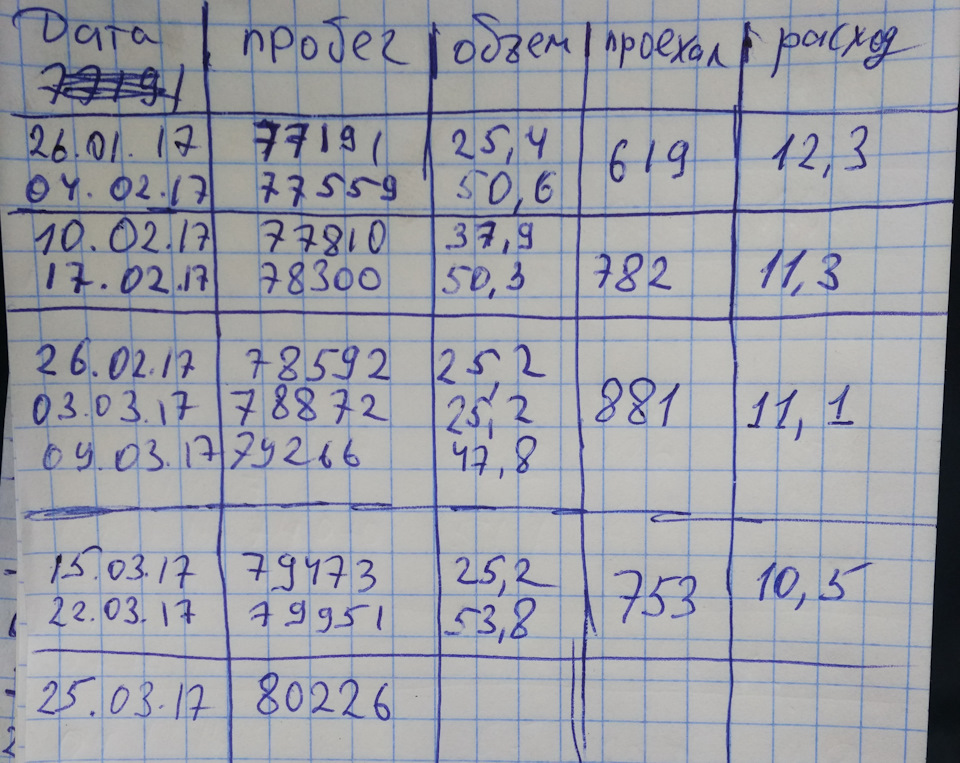 Дата пробег объем проехал расход
77191
26.01.17 77191 25,4 619 12,3
04.02.17 77559 50,6
10.02.17 77810 37,9
17.02.17 78300 50,3 782 11,3
26.02.17 78592 25,2
03.03.17 78872 25,2 881 11,1
09.03.17 79266 47,8
15.03.17 79473 25,2 753 10,5
22.03.17 79951 53,8
25.03.17 80226